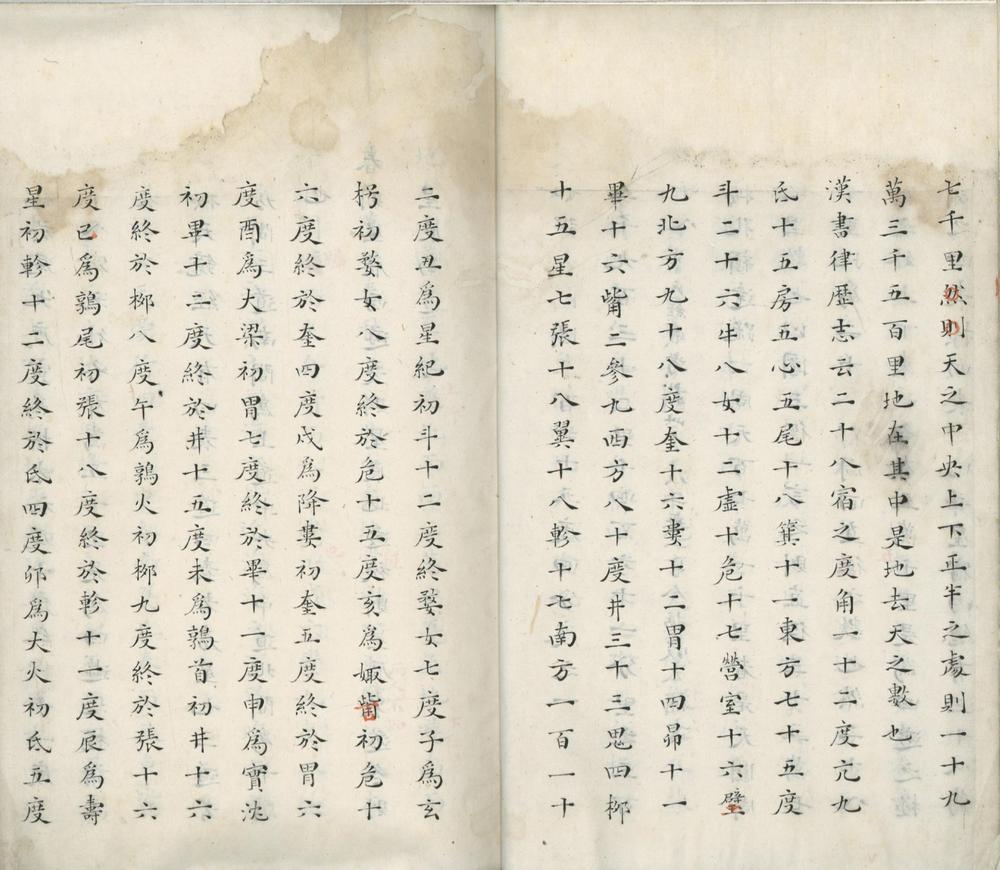 七千里然則天之中央上下正半之處則一十九
萬三千五百里地在其中是地去天之數也
漢書律歷志云二十八宿之度角一十二度亢九
氐十五房五心五尾十八箕十一東方七十五度
斗二十六牛八女十二虛十危十七營室十六壁
九北方九十八度奎十六婁十二胃十四昴十一
畢十六觜三參九西方八十度井三十三鬼四柳
十五星七張十八翼十八軫十七南方一百一十
二度丑爲星紀初斗十二度終婺女七度子爲玄
枵初婺女八度終於危十五度亥爲娵觜初危十
六度終於奎四度戌爲降婁初奎五度終於胃六
度酉爲大梁初胃七度終於畢十一度申爲實沈
初畢十二度終於井十五度未爲鶉首初井十六
度終於柳八度午爲鶉火初柳九度終於張十六
度巳爲鶉尾初張十八度終於軫十一度辰爲壽
星初軫十二度終於氐四度卯爲大火初氐五度